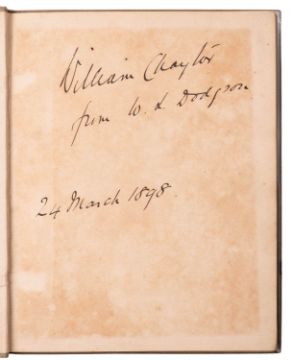 William Chaytor
from W. L Dodgson
24 March 1898.